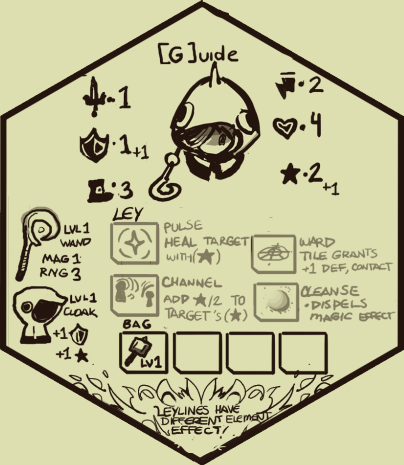 [G]uide
·1
·2
·1+1
·4
:3
·2+1
LEY
LVL1
WAND
MAG 1
RNG 3
PULSE
HEAL TARGET
WITH (★)
WARD
TILE GRANTS
+1 DEF, CONTACT
LVL1
CLOAK
+1
+1 ★
CHANNEL
ADD ★/2 TO
TARGET'S (★)
CLEANSE
·DISPELS
MAGIC EFFECT
BAG
LV1
LEYLINES HAVE
DIFFERENT ELEMENT
EFFECT!